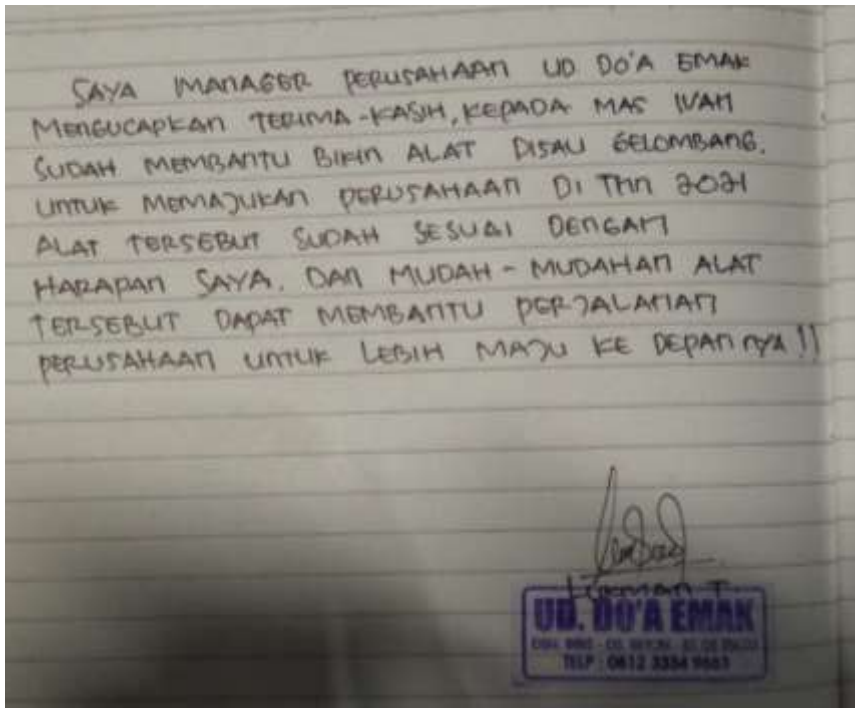 SAYA MANAGER PERUSAHAAN UD DO'A EMAK
MENGUCAPKAN TERIMA-KASIH, KEPADA MAS IVAN
SUDAH MEMBANTU BIKIN ALAT DISAU GELOMBANG.
UNTUK MEMAJUKAN PERUSAHAAN DI THN 2021
ALAT TERSEBUT SUDAH SESUAI DENGAN
HARAPAN SAYA. DAN MUDAH-MUDAHAN ALAT
TERSEBUT DAPAT MEMBANTU PERJALANAN
PERUSAHAAN UNTUK LEBIH MAJU KE DEPANNYA !!
LUKMAN T.
UD. DO'A EMAK
TELP : 0812 3334